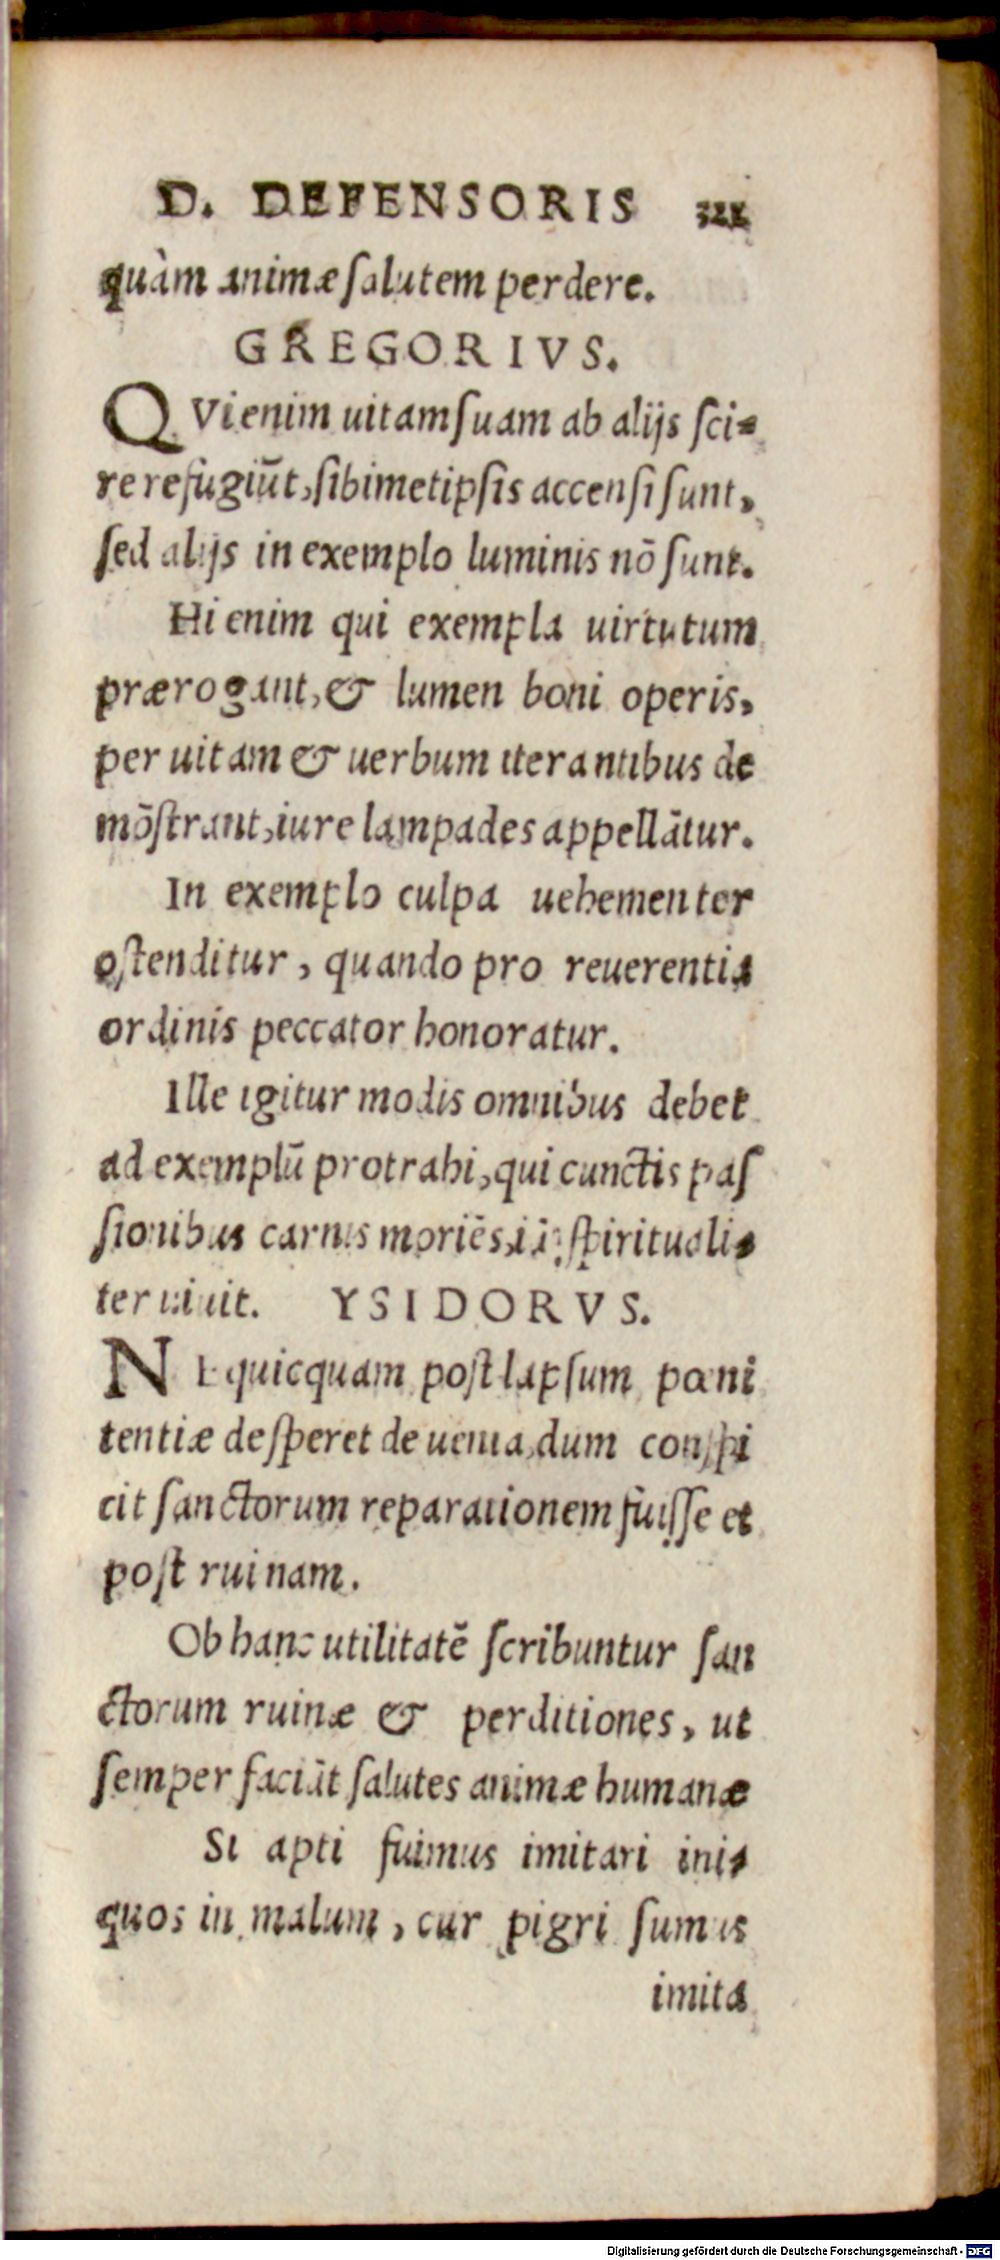 D. DEFENSORIS 321
quàm animæ salutem perdere.
GREGORIVS.
QVi enim uitam suam ab alijs sci-
re refugiūt, sibimetipsis accensi sunt,
sed alijs in exemplo luminis nō sunt.
Hi enim qui exempla uirtutum
prærogant, & lumen boni operis,
per uitam & uerbum iterantibus de
mōstrant, iure lampades appellātur.
In exemplo culpa uehementer
ostenditur, quando pro reuerentia
ordinis peccator honoratur.
Ille igitur modis omnibus debet
ad exemplū protrahi, qui cunctis pas
sionibus carnis moriēs, spirituali-
ter uiuit. YSIDORVS.
NE quicquam post lapsum pœni
tentiæ desperet de uenia, dum conspi
cit sanctorum reparationem fuisse et
post ruinam.
Ob hanc utilitatē scribuntur san
ctorum ruinæ & perditiones, ut
semper faciāt salutes animæ humanæ
Si apti fuimus imitari ini-
quos in malum, cur pigri sumus
imita
Digitalisierung gefördert durch die Deutsche Forschungsgemeinschaft - DFG